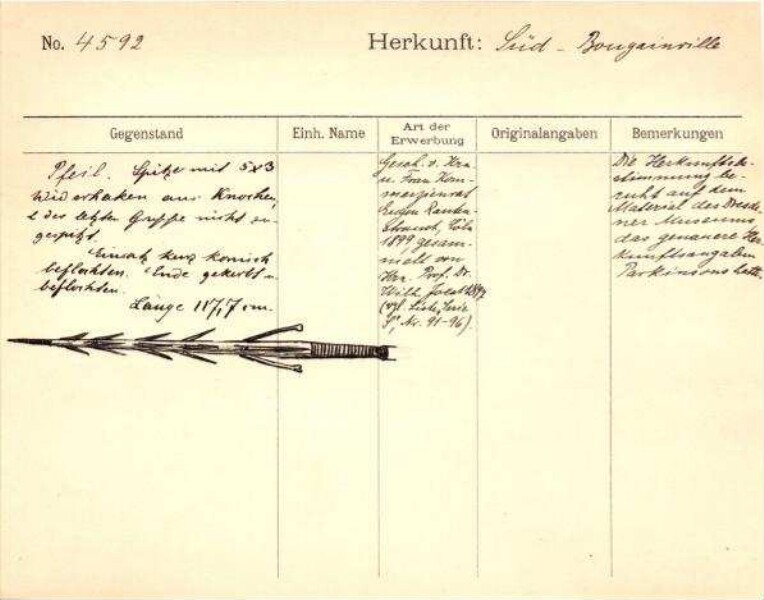 No. 4592
Herkunft: Süd - Bougainville
Gegenstand
Einh. Name
Art der Erwerbung
Originalangaben
Bemerkungen
Pfeil. Spitze mit 5x3
Widerhaken aus Knochen,
d. des letzten Gruppe nicht zu-
gespitzt.
Einsatz kurz konisch
beflochten. Ende gekerbt u.
beflochten.
Länge 117,7 cm.
Gesch. v. Hrn.
u. Frau Kom-
merzienrat
Eugen Rauten-
strauch, Cöln
1899 gesam-
melt von
Hrn. Prof. Dr.
Wilh. Joest 1897
(vgl. Liste, Serie
S, Nr. 91-96).
Die Herkunftsbe-
stimmung be-
ruht auf dem
Material des Dresde-
ner Museums
das genauere Her-
kunftsangaben
Parkinsons hatte.